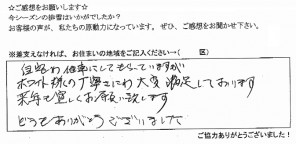 ☆ご感想をお願いします☆
今シーズンの排雪はいかがでしたか？
お客様の声が、私たちの原動力になっています。ぜひ、ご感想をお聞かせ下さい。
※差支えなければ、お住まいの地域をご記入ください…（　　　区）
仕事にしてもらっていますが
ホワイト 様の 丁寧さには 大変 満足しております
来年も宜しくお願い致します
どうもありがとうございました
ご協力ありがとうございました！